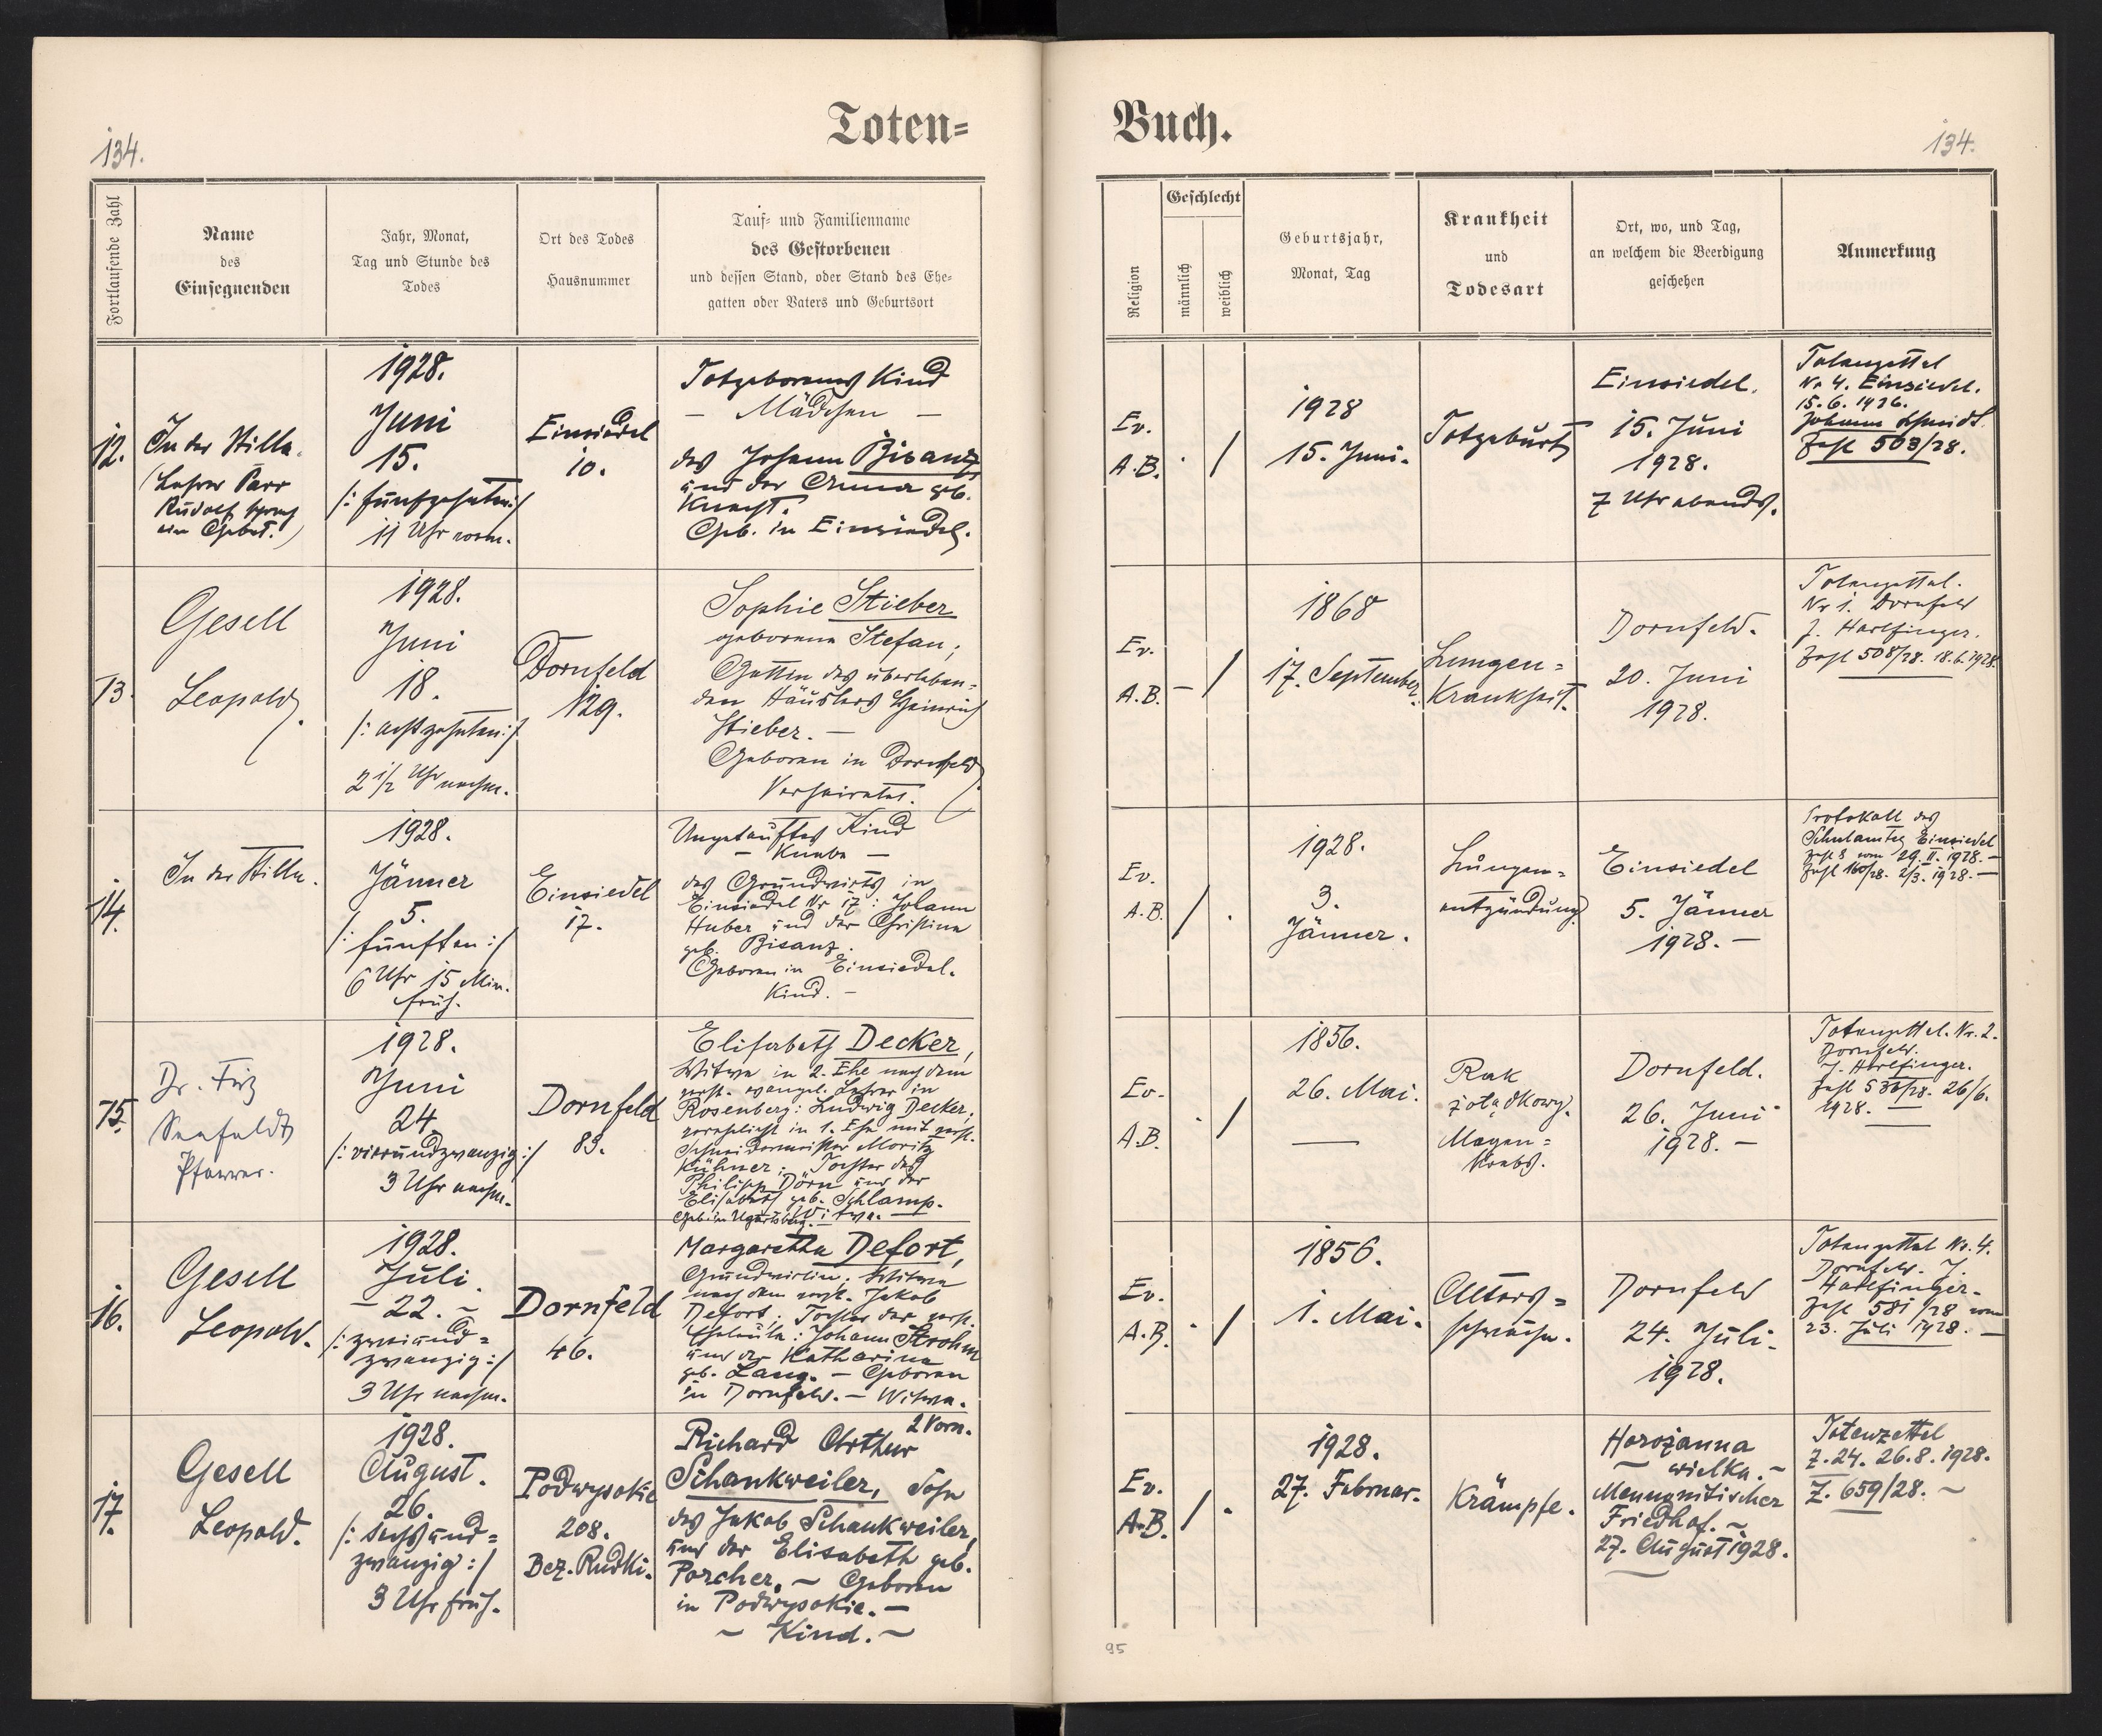 134.
Toten=
Fortlaufende Zahl
Name
des
Einsegnenden
Jahr, Monat,
Tag und Stunde des
Todes
Ort des Todes
Hausnummer
Tauf= und Familienname
des Gestorbenen
und dessen Stand, oder Stand des Ehe=
gatten oder Vaters und Geburtsort
12.
In der Stille.
(Lehrer Parr
Rudolf sprach
ein Gebet.)
1928.
Juni
15.
/: fünfzehnten :/
11 Uhr vorm.
Einsiedel
10.
Totgeborenes Kind
— Mädchen —
des Johann Bisanz
und der Anna geb.
Knecht.
Geb. in Einsiedel.
13.
Gesell
Leopold.
1928.
Juni
18.
/: achtzehnten :/
2 1/2 Uhr nachm.
Dornfeld
129.
Sophie Stieber
geborene Stefan;
Gattin des überleben=
den Häuslers Heinrich
Stieber. —
Geboren in Dornfeld
Verheiratet.
14.
In der Stille.
1928.
Jänner
5.
/: fünften :/
6 Uhr 15 Min.
früh.
Einsiedel
17.
Ungetauftes Kind
— Knabe —
des Grundwirts in
Einsiedel Nr 17: Johann
Huber und der Christine
geb. Bisanz.
Geboren in Einsiedel.
Kind. —
15.
Dr. Fritz
Seefeldt
Pfarrer.
1928.
Juni
24
/: vierundzwanzig :/
3 Uhr nachm.
Dornfeld
83.
Elisabeth Decker,
Witwe in 2. Ehe nach dem
verst. evangel. Lehrer in
Rosenberg: Ludwig Decker;
verehelicht in 1. Ehe mit verst.
Schneidermeister Moritz
Kühner; Tochter des
Philipp Dörn und der
Elisabeth geb. Schlamp.
Geb. in Ugartsberg. — Witwe. —
16.
Gesell
Leopold.
1928.
Juli.
— 22. —
/: zweiund=
zwanzig :/
3 Uhr nachm.
Dornfeld
46.
Margaretha Defort,
Grundwirtin; Witwe
nach dem verst. Jakob
Defort; Tochter der verst.
Eheleute: Johann Strohm
und der Katharina
geb. Lang. — Geboren
in Dornfeld. — Witwe.
17.
Gesell
Leopold.
1928.
August.
26.
/: sechsund=
zwanzig :/
3 Uhr früh.
Podwysokie
208.
Bez. Rudki.
2 Vorn.
Richard Arthur
Schankweiler, Sohn
des Jakob Schankweiler,
und der Elisabeth geb.
Porcher. — Geboren
in Podwysokie. —
— Kind. —
Buch.
134.
Religion
Geschlecht
männlich
weiblich
Geburtsjahr,
Monat, Tag
Krankheit
und
Todesart
Ort, wo, und Tag,
an welchem die Beerdigung
geschehen
Anmerkung
Ev.
A.B.
. /
1928
15. Juni.
Totgeburt
Einsiedel.
15. Juni
1928.
7 Uhr abends.
Totenzettel
Nr 4. Einsiedel.
15.6.1926.
Johann Schmidt.
Zahl 503/28.
Ev.
A.B.
— /
1868
17. September.
Lungen=
Krankheit.
Dornfeld.
20. Juni
1928.
Totenzettel.
Nr 1. Dornfeld
J. Harlfinger.
Zahl 508/28. 18.6.1928.
Ev.
A.B.
/ .
1928.
3.
Jänner.
Lungen=
entzündung.
Einsiedel
5. Jänner
1928. —
Protokoll des
Schulamtes Einsiedel
Zahl 8 vom 29. II. 1928. —
Zahl 160/28. 2/3. 1928. —
Ev.
A.B.
. /
1856.
26. Mai.
—
Rak
żołądkowy.
Magen=
Krebs.
Dornfeld.
26. Juni
1928. —
Totenzettel. Nr. 2.
Dornfeld.
J. Harlfinger.
26/6.
1928. —
Ev.
A.B.
. /
1856.
1. Mai.
Alters=
schwäche.
Dornfeld
24. Juli.
1928.
Totenzettel Nr. 4.
Dornfeld. J.
Harlfinger.
Zahl 581/28 vom
23. Juli 1928. —
Ev.
A.B.
/ .
1928.
27. Februar.
Krämpfe.
Horożanna
wielka. —
Mennonitischer
Friedhof. —
27. August 1928.
Totenzettel
Z. 24. 26.8.1928.
Z. 659/28. —
95